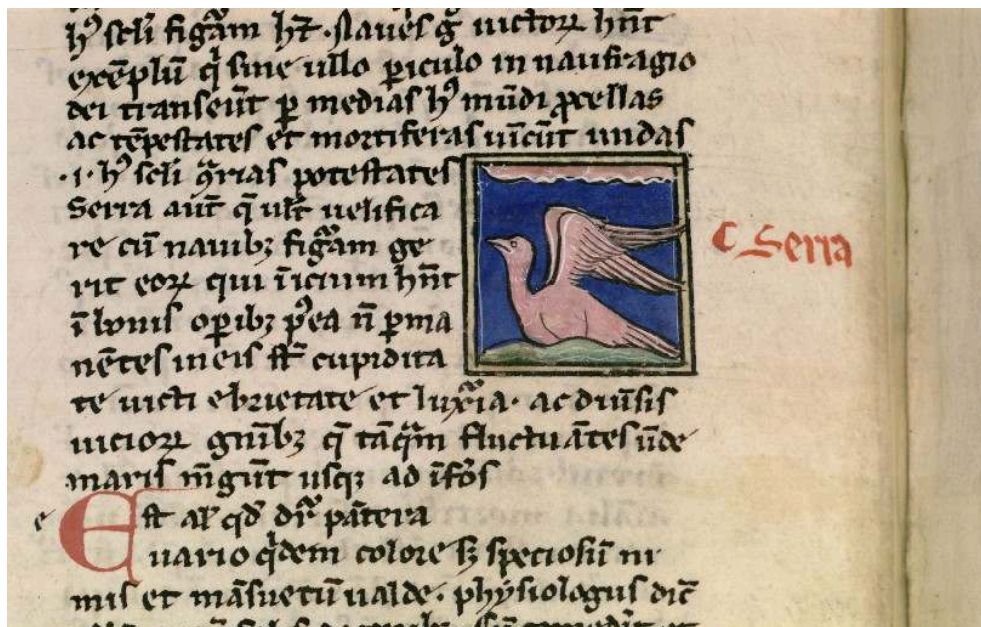 hꝰ scłi figᷓam hꝫ . Naues gͦ uictorꝝ hn̄t
exēplū qͥ sine ullo ꝑiculo in naufragio
dei transeūt ꝑ medias hꝰ mūdi ꝓcellas
ac tēpestates et mortiferas uīcūt undas
.i. hꝰ scłi ꝯ̓rias potestates
Serra aūt q̄ ult̄ uelifica
re cū nauibꝫ figᷓam ge
rit eorꝝ qui īicium hn̄t
ī bonis oꝑibꝫ pꝰea n̄ ꝑma
nētes in eis st̄ cupidita
te uicti ebrietate et luxᷓia . ac diuͥsis
uiciorꝝ gn̄ibꝫ q̄ tāqᷓm fluctuātes ūde
maris m̄gūt usqꝫ ad īfos
e Est al̓ qd̓ dr̄ pātera
uario qͥdem colore sꝫ speciosū ni
mis et māsuetū ualde . physiologus dic̄
C Serra